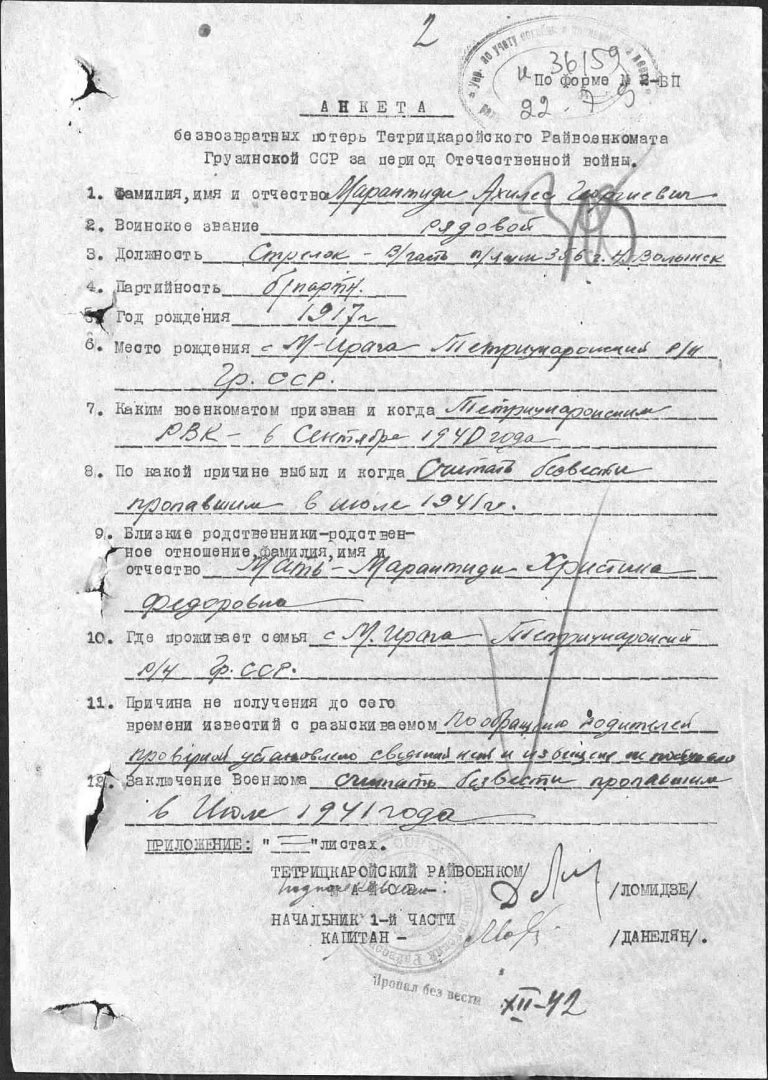 2
36159
По форме № 2-БП
22.
АНКЕТА
безвозвратных потерь Тетрицкаройского Райвоенкомата
Грузинской ССР за период Отечественной войны.
1. Фамилия, имя и отчество Марантиди Ахилес Георгиевич
2. Воинское звание рядовой
3. Должность Стрелок – В/часть п/ящик 356 г. Н. Волынск
4. Партийность б/парт.
5. Год рождения 1917 г
6. Место рождения с М-Ирага Тетрицкаройский р/н
Гр. ССР.
7. Каким военкоматом призван и когда Тетрицкаройским
РВК – в Сентябре 1940 года
8. По какой причине выбыл и когда Считать безвести
пропавшим в июле 1941 г.
9. Близкие родственники-родствен-
ное отношение, фамилия, имя и
отчество Мать – Марантиди Христина
Федоровна
10. Где проживает семья с М. Ирага Тетрицкаройский
р/н Гр. ССР.
11. Причина не получения до сего
времени известий с разыскиваемом По обращению родителей
проверкой установлено сведений нет и извещение не поступало
12. Заключение Военкома считать безвести пропавшим
в Июле 1941 года
ПРИЛОЖЕНИЕ: " = "листах.
ТЕТРИЦКАРОЙСКИЙ РАЙВОЕНКОМ/
подполковник –
/ЛОМИДЗЕ/
НАЧАЛЬНИК 1-й ЧАСТИ
КАПИТАН – /ДАНЕЛЯН/.
Пропал без вести
XII-42